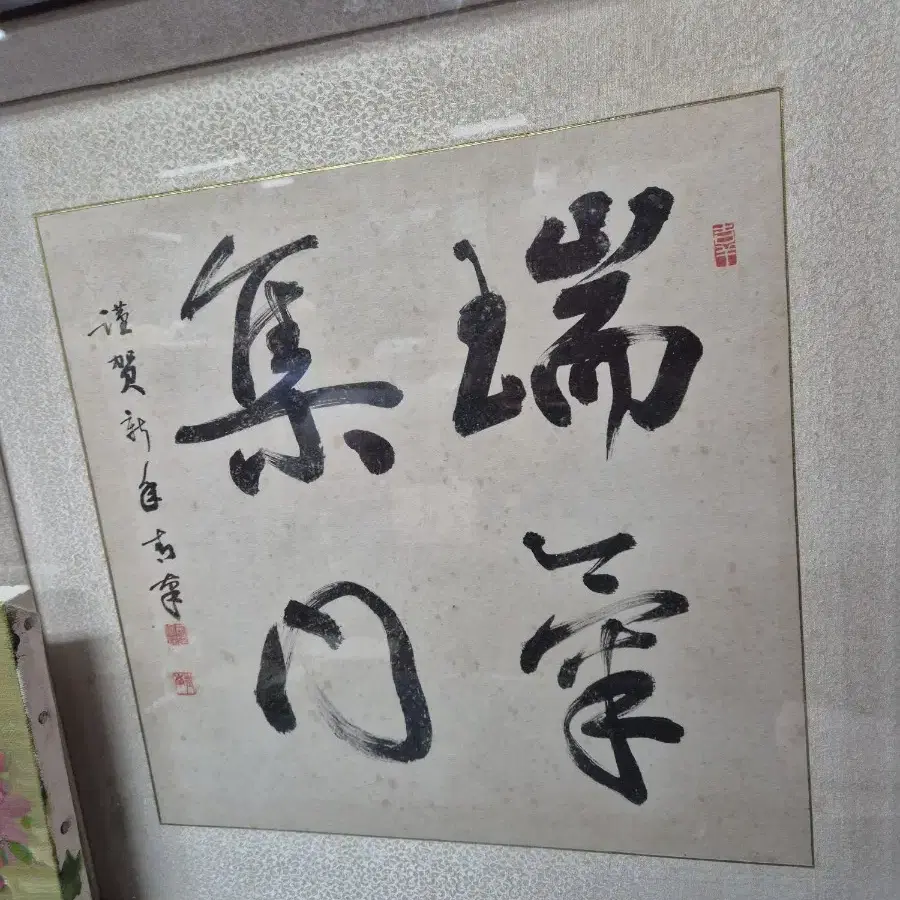 瑞氣
集門
謹賀新年